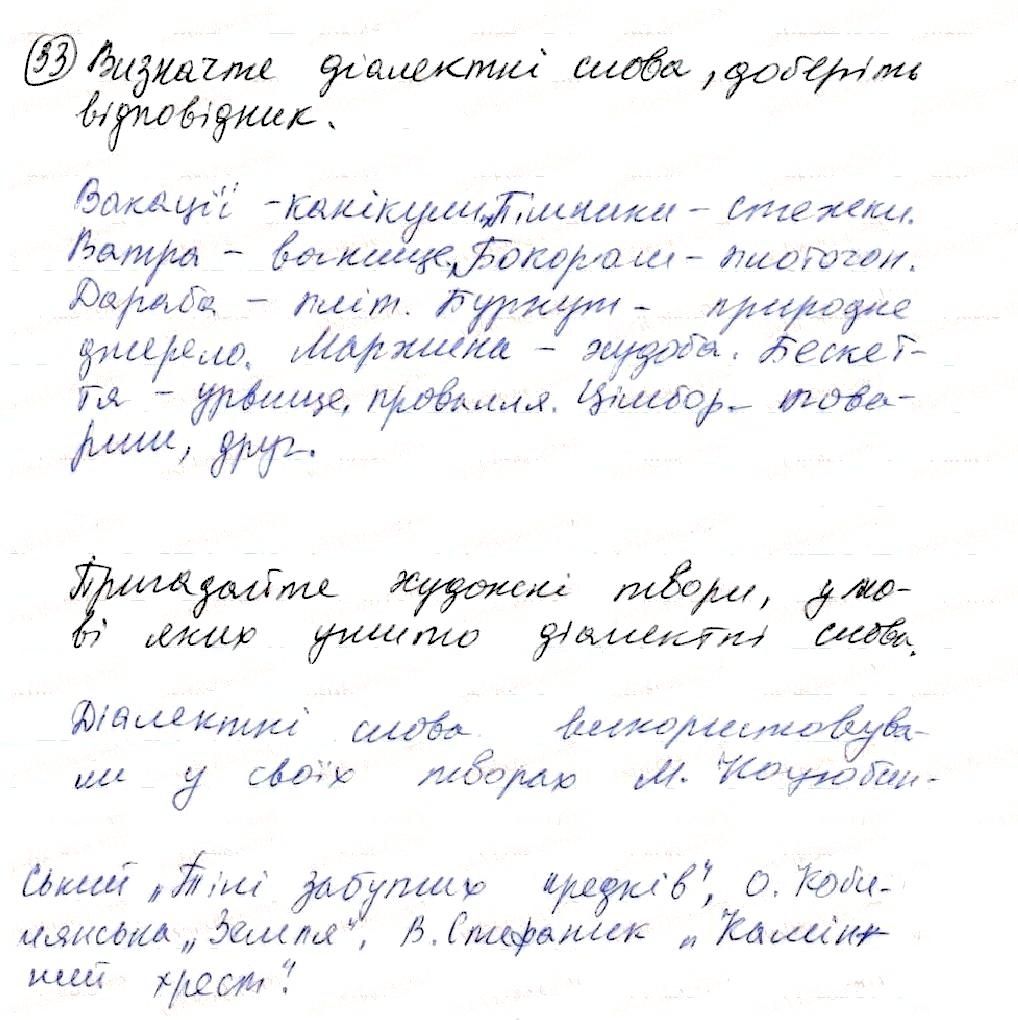 33 Визначте діалектні слова, доберіть
відповідник.
Вакації - канікули. Пішники - стежки.
Ватра - вогнище, Бокораш - плотогон.
Дараба - пліт. Буркут - природне
джерело. Маржина - худоба. Бескет-
тя - урвище, провалля. Цімбор - това-
риш, друг.
Пригадайте художні твори, у мо-
ві яких ужито діалектні слова.
Діалектні слова використовува-
ли у своїх творах М. Коцюбин-
ський „Тіні забутих предків", О. Коби-
лянська „Земля", В. Стефаник „Камін-
ний хрест".